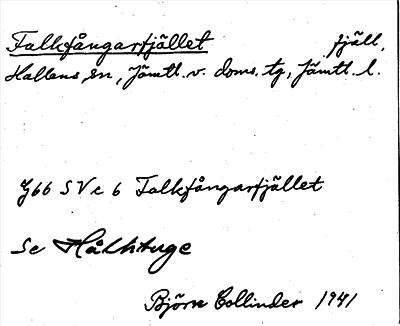 Falkfångarfjället fjäll,
Hallens sn, Jämtl. v. doms. tg, Jämtl. l.
J66 SV c 6 Falkfångarfjället
Se
Björn Collinder 1941